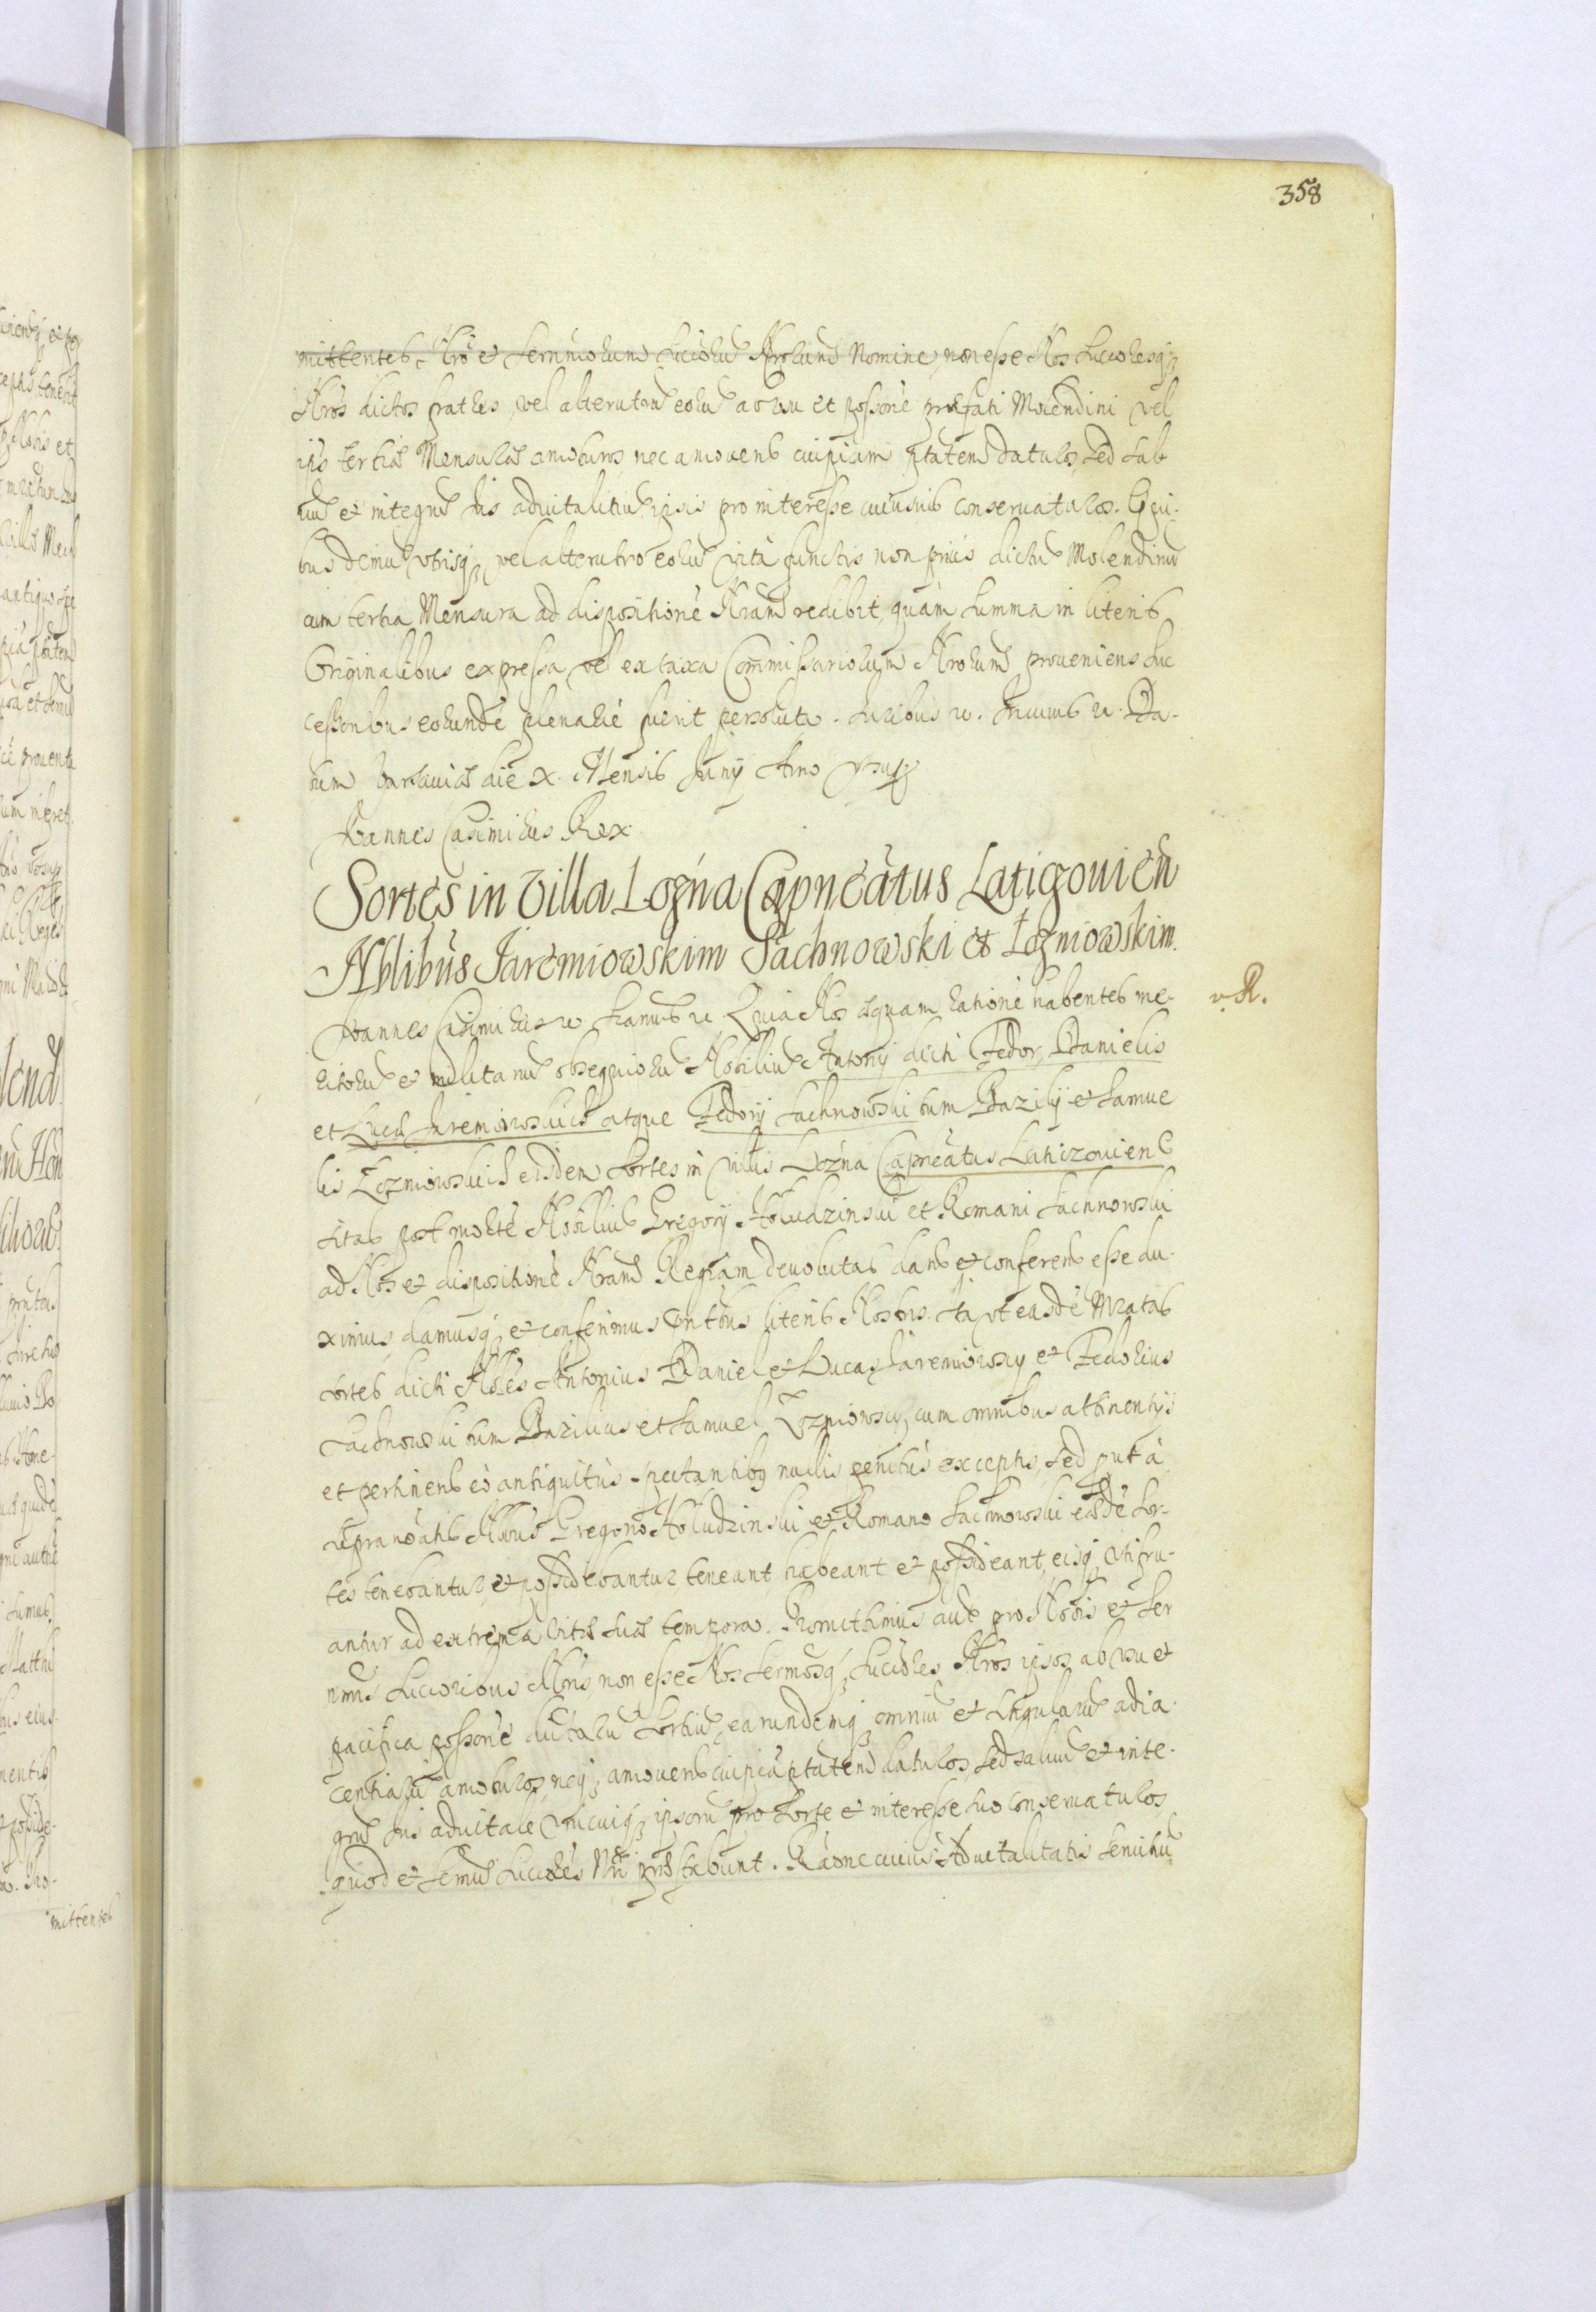 358
mittentes Nro et Sermorum Succrum Nrorum Nomine, non esse Nos Succoresq
Nros dictos fratres, vel alterutrum eorum ab usu et possone præfati Molendini vel
ips tertiæ Mensuræ amoturos, nec amovendi cuipiam ptatem daturos, sed sal
vum et integrum Jus advitalitium ipsis pro interesse cuiusvis conservaturos. Qui-
bus demum utrisq, vel alterutro eorum vita functis non prius dictum Molendinum
cum tertia Mensura ad dispositione Nram redibit, quam summa in literis
Originalibus expressa, vel ex taxa Commissariorum Nrorum proveniens Suc
cessoribus eorunde plenarie fuerit persoluta. Juribus r. Incuius r. Da-
tum Varsaviæ die X. Mensis Junij Anno ut supra
Joannes Casimirus Rex
Sortes in Villa Lozna Capneatus Laticzouien
Nblibus Jaremiowskim Sachnowski et Lozniowskim.
v. R.
Joannes Casimirus r. Quia Nos æquam ratione habentes me-
ritorum et militarium obsequiorum Nobilium Antonij dicti Fedor, Danielis
et Lucæ Jaremiowskich atque Fedorij Sachnowski tum Bazilij et Samue
lis Lozniowskich eisdem Sortes in villis Lozna Capneatus Laticzouiens
sitas post morte Nobilium Gregorij Holudzinski et Romani Sachnowski
ad Nos et dispositione Nram Regiam devolutas dandas et conferendas esse du-
ximus, damusq et conferimus pntbus literis Nostris. Ita ut easde Mratas
sortes dicti Nbles Antonius Daniel et Lucas Jaremiowscy et Fedorius
Sachnowski tum Bazilius et Samuel Lozniowscy, cum omnibus attinentijs
et pertinens eo antiquitus spectantibq nullis penitus exceptis, sed put a
supranoatis Nblibus Gregorio Holudzinski et Romano Sachnowski eæde Sor-
tes tenebantur et possidebantur, teneant habeant et possideant, eisq utifru-
antur ad extrema vitæ suæ tempora. Promittimus aut pro Nobis et Ser
nmis Succoribus Nris, non esse Nos Sermosq Succores Nros ipsos ab usu et
pacifica possone dictarum Sortium, earundemq omnium et singularum adia-
centiarum amoturos, neq amovendi cuipia ptatem daturos, sed salvum et inte-
grum Jus advitale unicuiq ipsorum pro sorte et interesse suo conservaturos
quod et Sermi Succores Nri præstabunt. Raone cuius Advitalitatis servitium